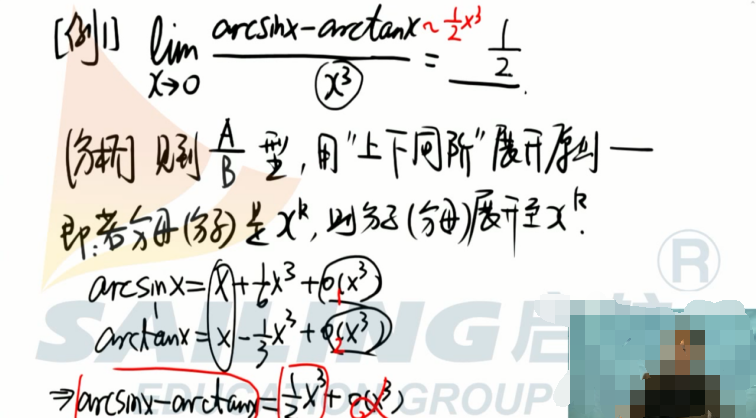 [例1] lim x→0 (arcsinx-arctanx ~ ½x³)/(x³) = ½.
[分析] 见到 A/B 型, 用"上下同阶"展开原则——
即:若分母(分子)是xᵏ, 则分子(分母)展开至xᵏ.
arcsinx = x + ⅙x³ + o₁(x³)
arctanx = x - ⅓x³ + o₂(x³)
⇒ arcsinx-arctanx = ½x³ + o(x³)
SAILING启航®
EDUCATION GROUP